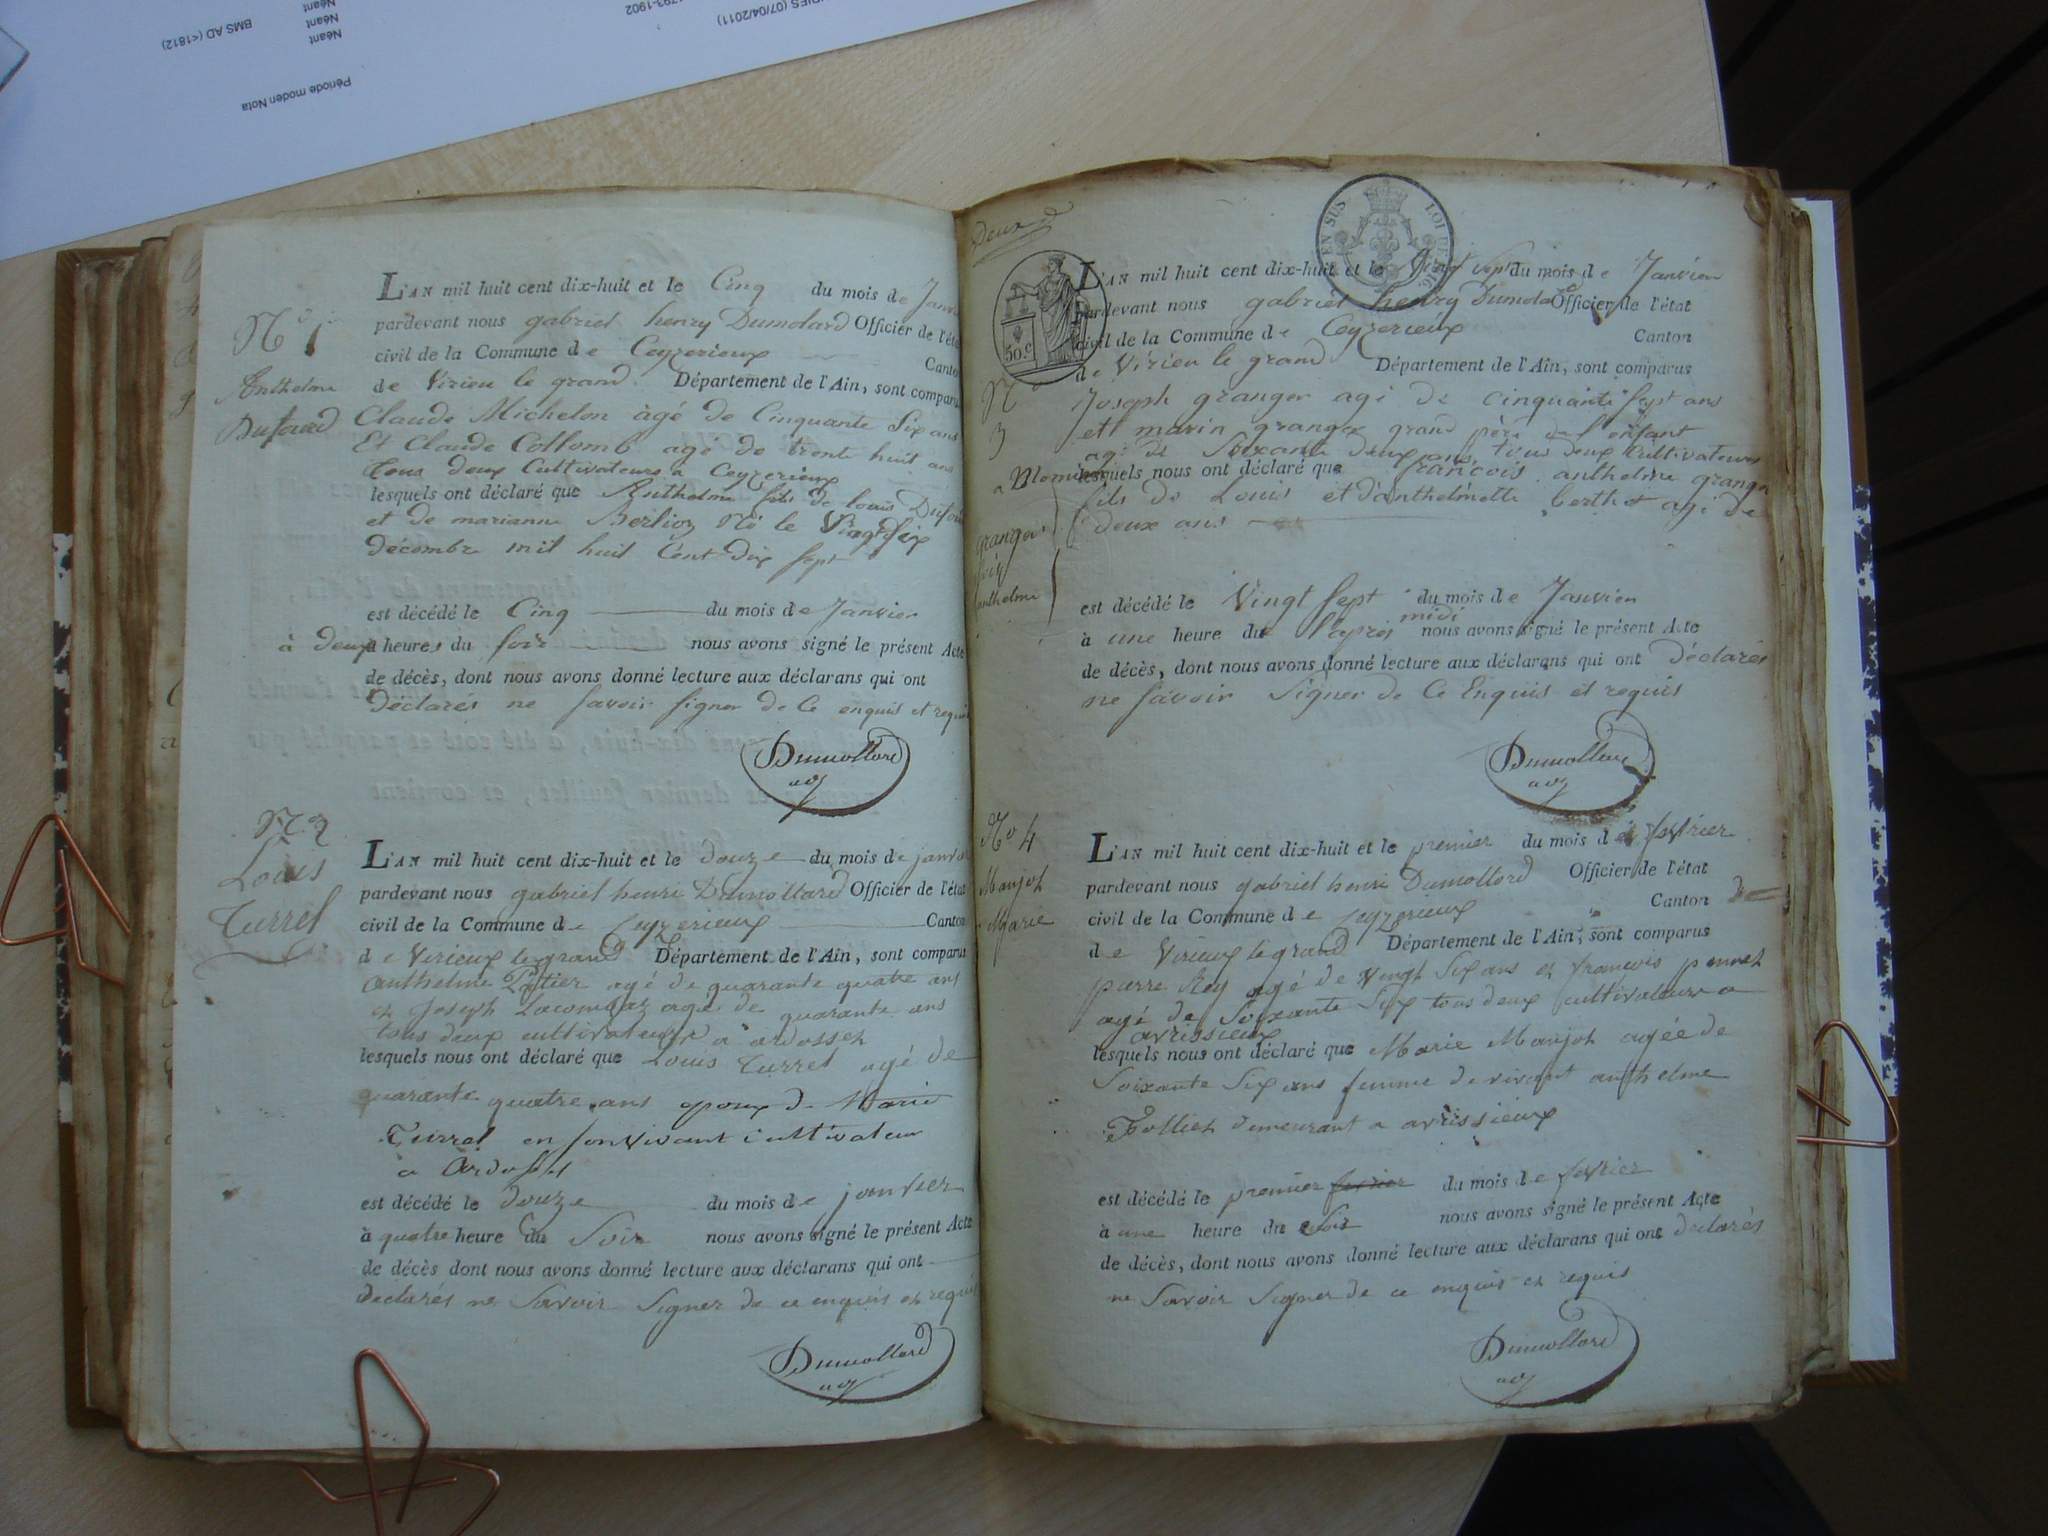 Période moden Nota
Néant
Néant
Néant
BMS AD (<1812)
(07/04/2011)
1793-1902
N° 1
Anthelme
Dufour
L'AN mil huit cent dix-huit et le Cinq du mois de Janvi
pardevant nous gabriel henry Dumolard Officier de l'éta
civil de la Commune de Ceyzerieux Canton
de Virieu le grand Département de l'Ain, sont comparus
Claude Michelon àgé de Cinquante Six ans
Et Claude Collomb agé de trente huit ans
tous deux Cultivateurs a Ceyzerieux
lesquels ont déclaré que Anthelme fils de louis Dufour
et de marianne Berlioz Né le Vingt six
décembre mil huit Cent dix sept
est décédé le Cinq du mois de Janvier
à deux heures du soir nous avons signé le présent Acte
de décès, dont nous avons donné lecture aux déclarans qui ont
déclarés ne savoir signer de Ce enquis et requis
Dumollard
N° 2
Louis
Turrel
L'AN mil huit cent dix-huit et le douze du mois de janvier
pardevant nous gabriel henri Dumollard Officier de l'état
civil de la Commune de Ceyzerieux Canton
de Virieux le grand Département de l'Ain, sont comparus
anthelme agé de quarante quatre ans
et Joseph Lacombaz agé de quarante ans
tous deux cultivateurs a ardosset
lesquels nous ont déclaré que Louis Turrel agé de
quarante quatre ans epoux de Marie
Turrel en son vivant cultivateur
a Ardosset
est décédé le douze du mois de janvier
à quatre heure du Soir nous avons signé le présent Acte
de décès dont nous avons donné lecture aux déclarans qui ont
declarés ne Savoir Signer de ce enquis et requis
Dumollard
Deux
EN SUS
50.c
N°
3
a
granger
anthelme
L'AN mil huit cent dix-huit et le Vingt sept du mois de Janvier
pardevant nous gabriel henry Dumolard Officier de l'état
civil de la Commune de Ceyzerieux Canton
de Virieu le grand Département de l'Ain, sont comparus
Joseph granger agé de cinquante sept ans
et marin granger grand père de l'enfant
agé de Soixante deux ans, tous deux Cultivateurs
lesquels nous ont déclaré que francois anthelme granger
fils de Louis et d'anthelmette berthet agé de
deux ans
est décédé le Vingt sept du mois de Janvier
à une heure du l'après midi nous avons signé le présent Acte
de décès, dont nous avons donné lecture aux déclarans qui ont déclarés
ne savoir Signer de Ce Enquis et requis
Dumollard
N° 4
Manjot
Marie
L'AN mil huit cent dix-huit et le premier du mois de fevrier
pardevant nous gabriel henri Dumollard Officier de l'état
civil de la Commune de Ceyzerieux Canton de
de Virieux le grand Département de l'Ain, sont comparus
pierre Rey agé de vingt Six ans et francois
agé de Soixante Six tous deux cultivateurs a
avrissieux
lesquels nous ont déclaré que Marie Manjot agée de
Soixante Six ans femme de vivant anthelme
Folliet demeurant a avrissieux
est décédé le premier fevrier du mois de fevrier
à une heure du Soir nous avons signé le présent Acte
de décès, dont nous avons donné lecture aux déclarans qui ont declarés
ne Savoir Signer de ce enquis et requis
Dumollard